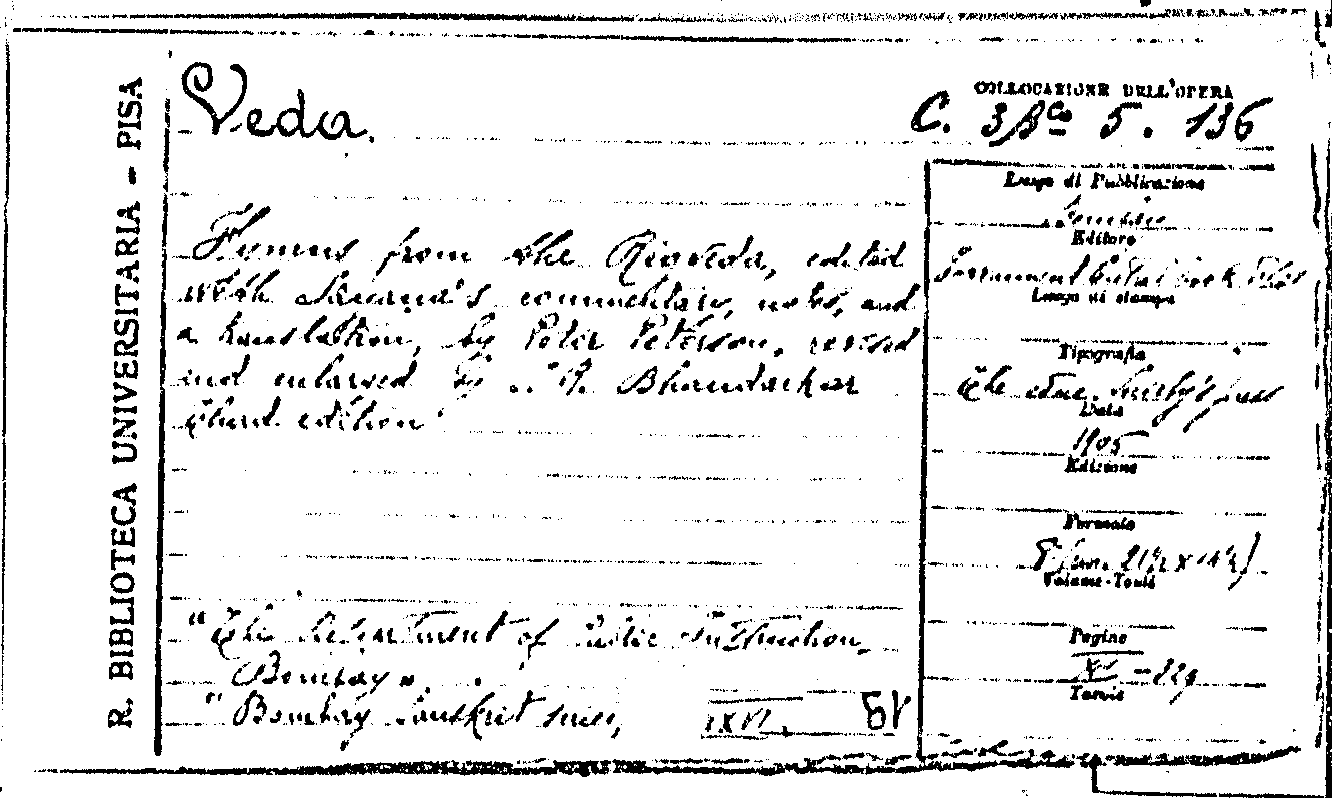 R. BIBLIOTECA UNIVERSITARIA - PISA
Veda.
COLLOCAZIONE DELL'OPERA
C. 3 5. 136
Hymns from the Rigveda, edited
with Sayana's commentary, notes, and
a translation, by Peter Peterson, revised
and enlarged by Bhandarkar
Third edition
"The Department of Public Instruction,
Bombay".
"Bombay Sanskrit series,
Luogo di Pubblicazione
Bombay
Editore
Government Central book
Luogo di stampa
Tipografia
The educ. Society's press
Data
1905
Edizione
Formato
8°
Volume-Tomi
Pagine
Tavole